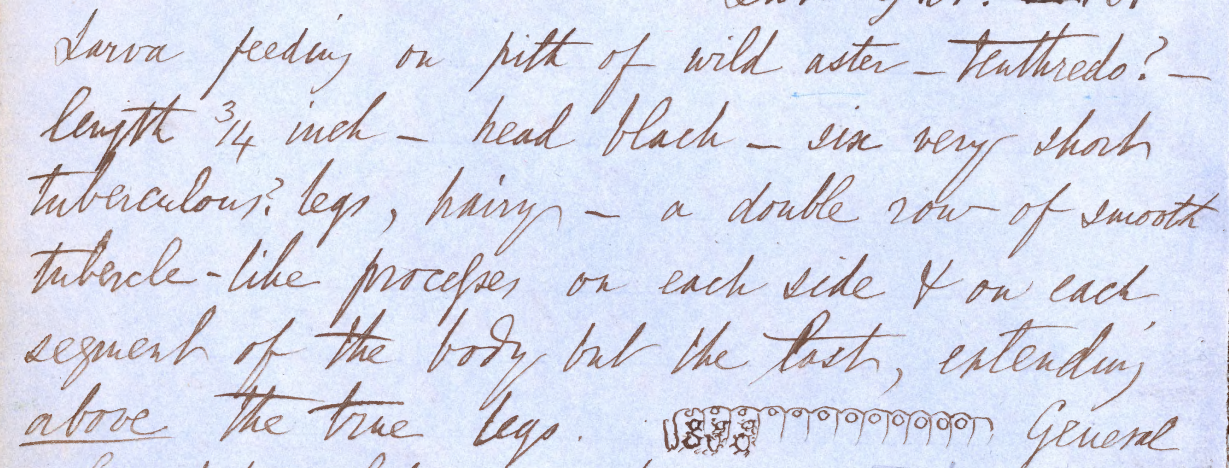 Larva feeding on pith of wild aster – Tenthredo? –
length 3/4 inch – head black – six very short
tuberculous? legs, hairy – a double row of smooth
tubercle-like processes on each side & on each
segment of the body but the last, extending
above the true legs. General